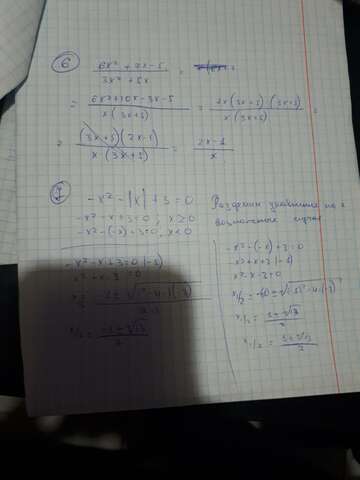 6
6x² + 7x - 5 / 3x² + 5x =
= 6x² + 10x - 3x - 5 / x(3x+5) = 2x(3x+5) · (3x+5) / x(3x+5) =
= (3x+5)(2x-1) / x·(3x+5) = 2x-1 / x
7
-x² - |x| + 3 = 0 Разделим уравнение на 2
-x² - x + 3 = 0, x ≥ 0 возможных случая
-x² - (-x) + 3 = 0, x < 0
-x² - x + 3 = 0 |(-1)
x² + x - 3 = 0
x₁/₂ = -1 ± √1² - 4·1·(-3) / 2·1
x₁/₂ = -1 ± √13 / 2
-x² - (-x) + 3 = 0
-x² + x + 3 |(-1)
x² - x - 3 = 0
x₁/₂ = 1 ± √13 / 2
x₁/₂ = 1 ± √13 / 2